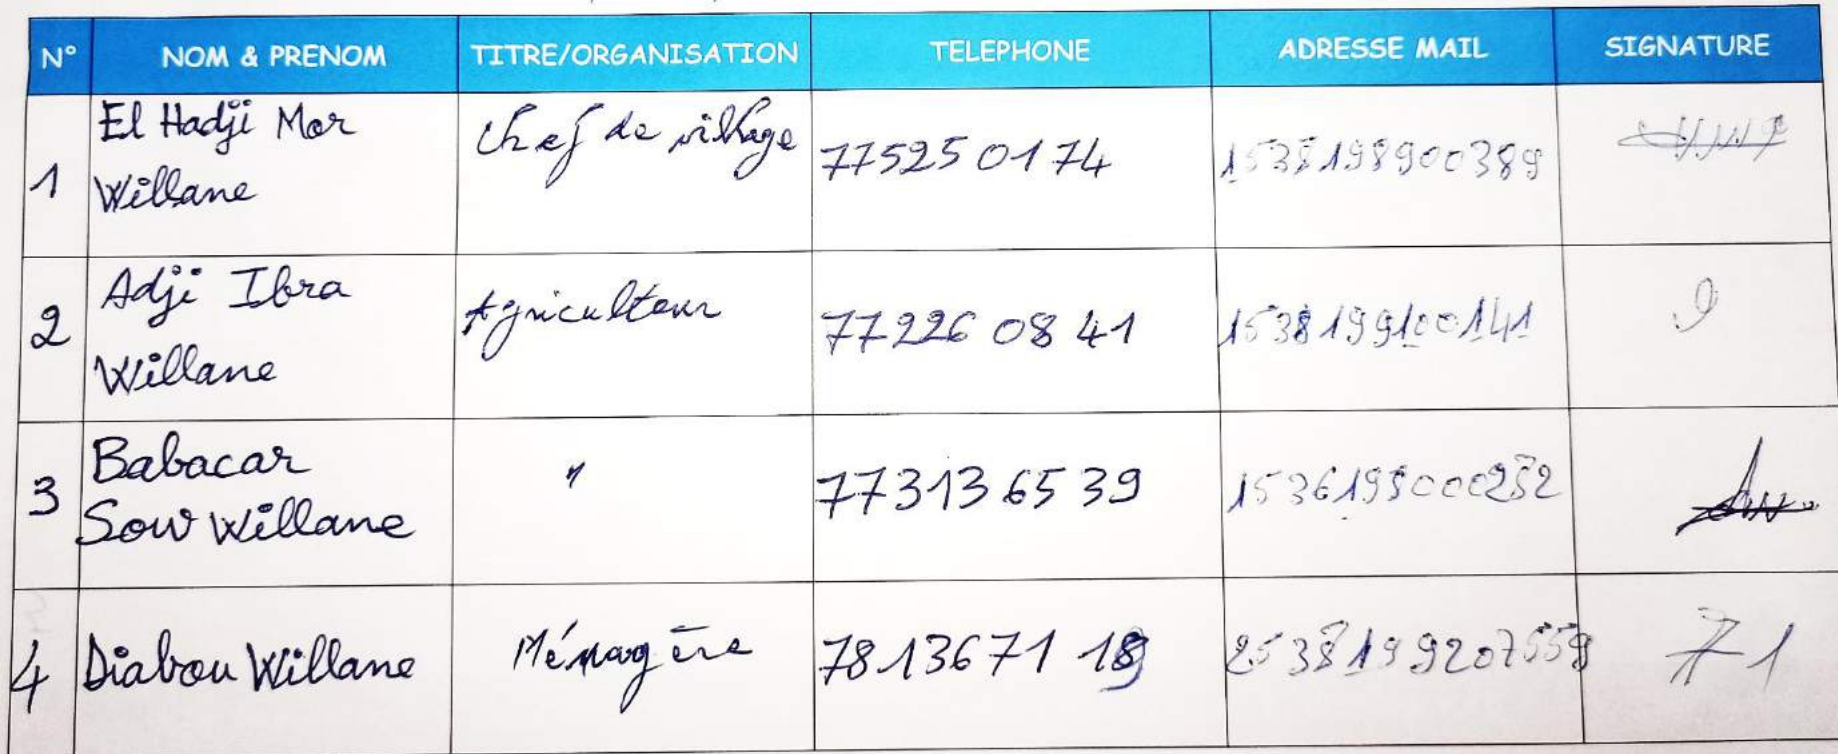 N° NOM & PRENOM TITRE/ORGANISATION TELEPHONE ADRESSE MAIL SIGNATURE
1 El Hadji Mor Willane Chef de village 77525 01 74 1538198900389
2 Adji Ibra Willane Agriculteur 77226 08 41 1538199100141
3 Babacar Sow Willane " 77313 65 39
4 Diabou Willane Ménagère 7813671 2538199207559